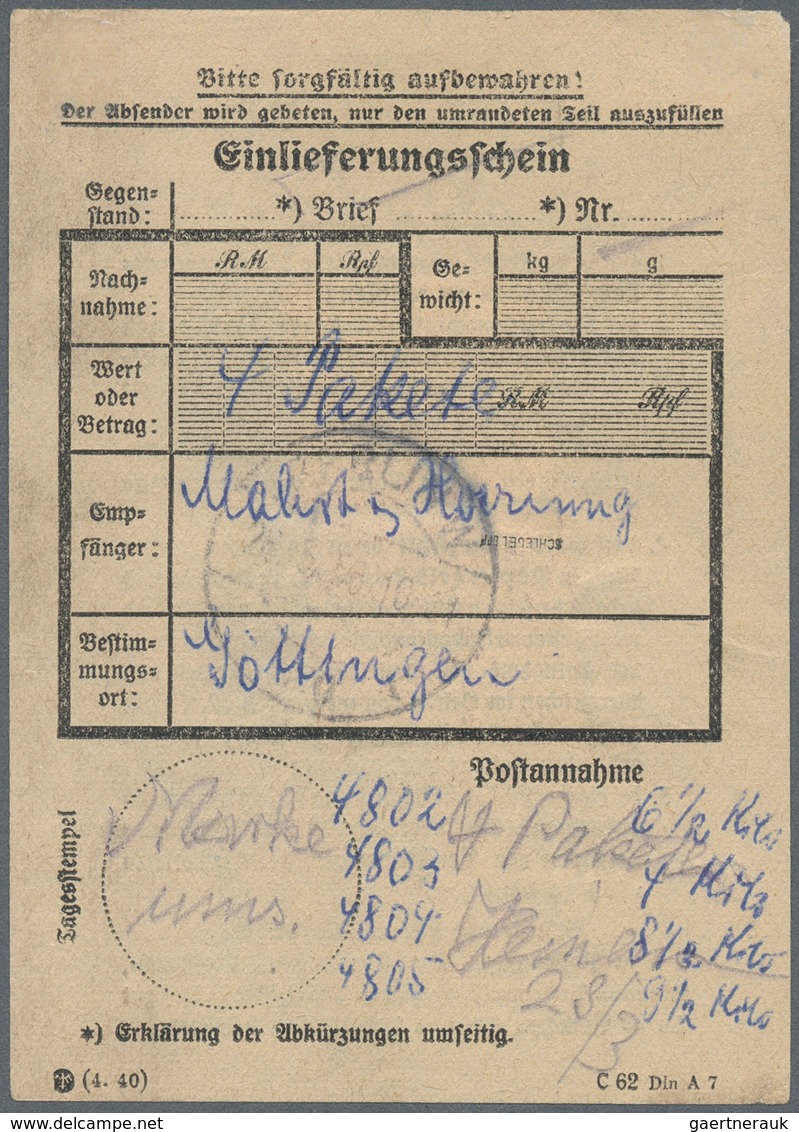 Bitte sorgfältig aufbewahren!
Der Absender wird gebeten, nur den umrandeten Teil auszufüllen
Einlieferungsschein
Gegen-
stand: *) Brief *) Nr.
Nach-
nahme:
RM Rpf
Ge-
wicht:
kg g
Wert
oder
Betrag:
4 Pakete RM Rpf
Emp-
fänger:
Mahrt & Hoerning
SCHLEGEL
Bestim-
mungs-
ort:
Göttingen
Postannahme
Tagesstempel
Marke
ums.
4802 6 1/2 Kilo
4803 4 Kilo
4804 8 1/2 Kilo
4805 9 1/2 Kilo
4 Pakete
28/3
*) Erklärung der Abkürzungen umseitig.
(4. 40)
C 62 Din A 7
gaertnerauk